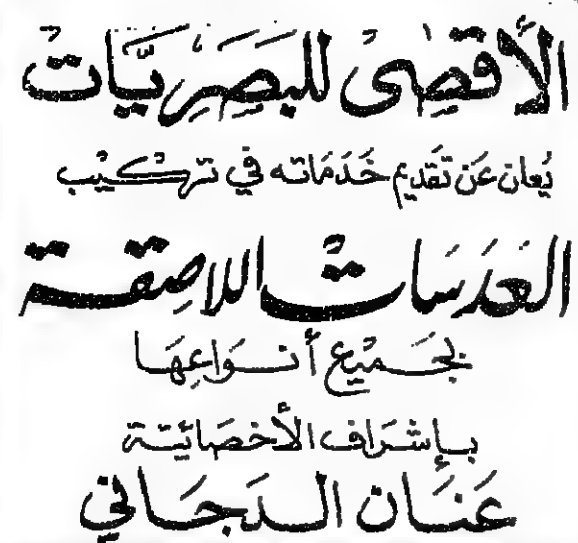 الأقصى للبصريات
يُعلن عن تقديم خدماته في تركيب
العدسات اللاصقة
بجميع أنواعها
بإشراف الأخصائية
عنان الدجاني